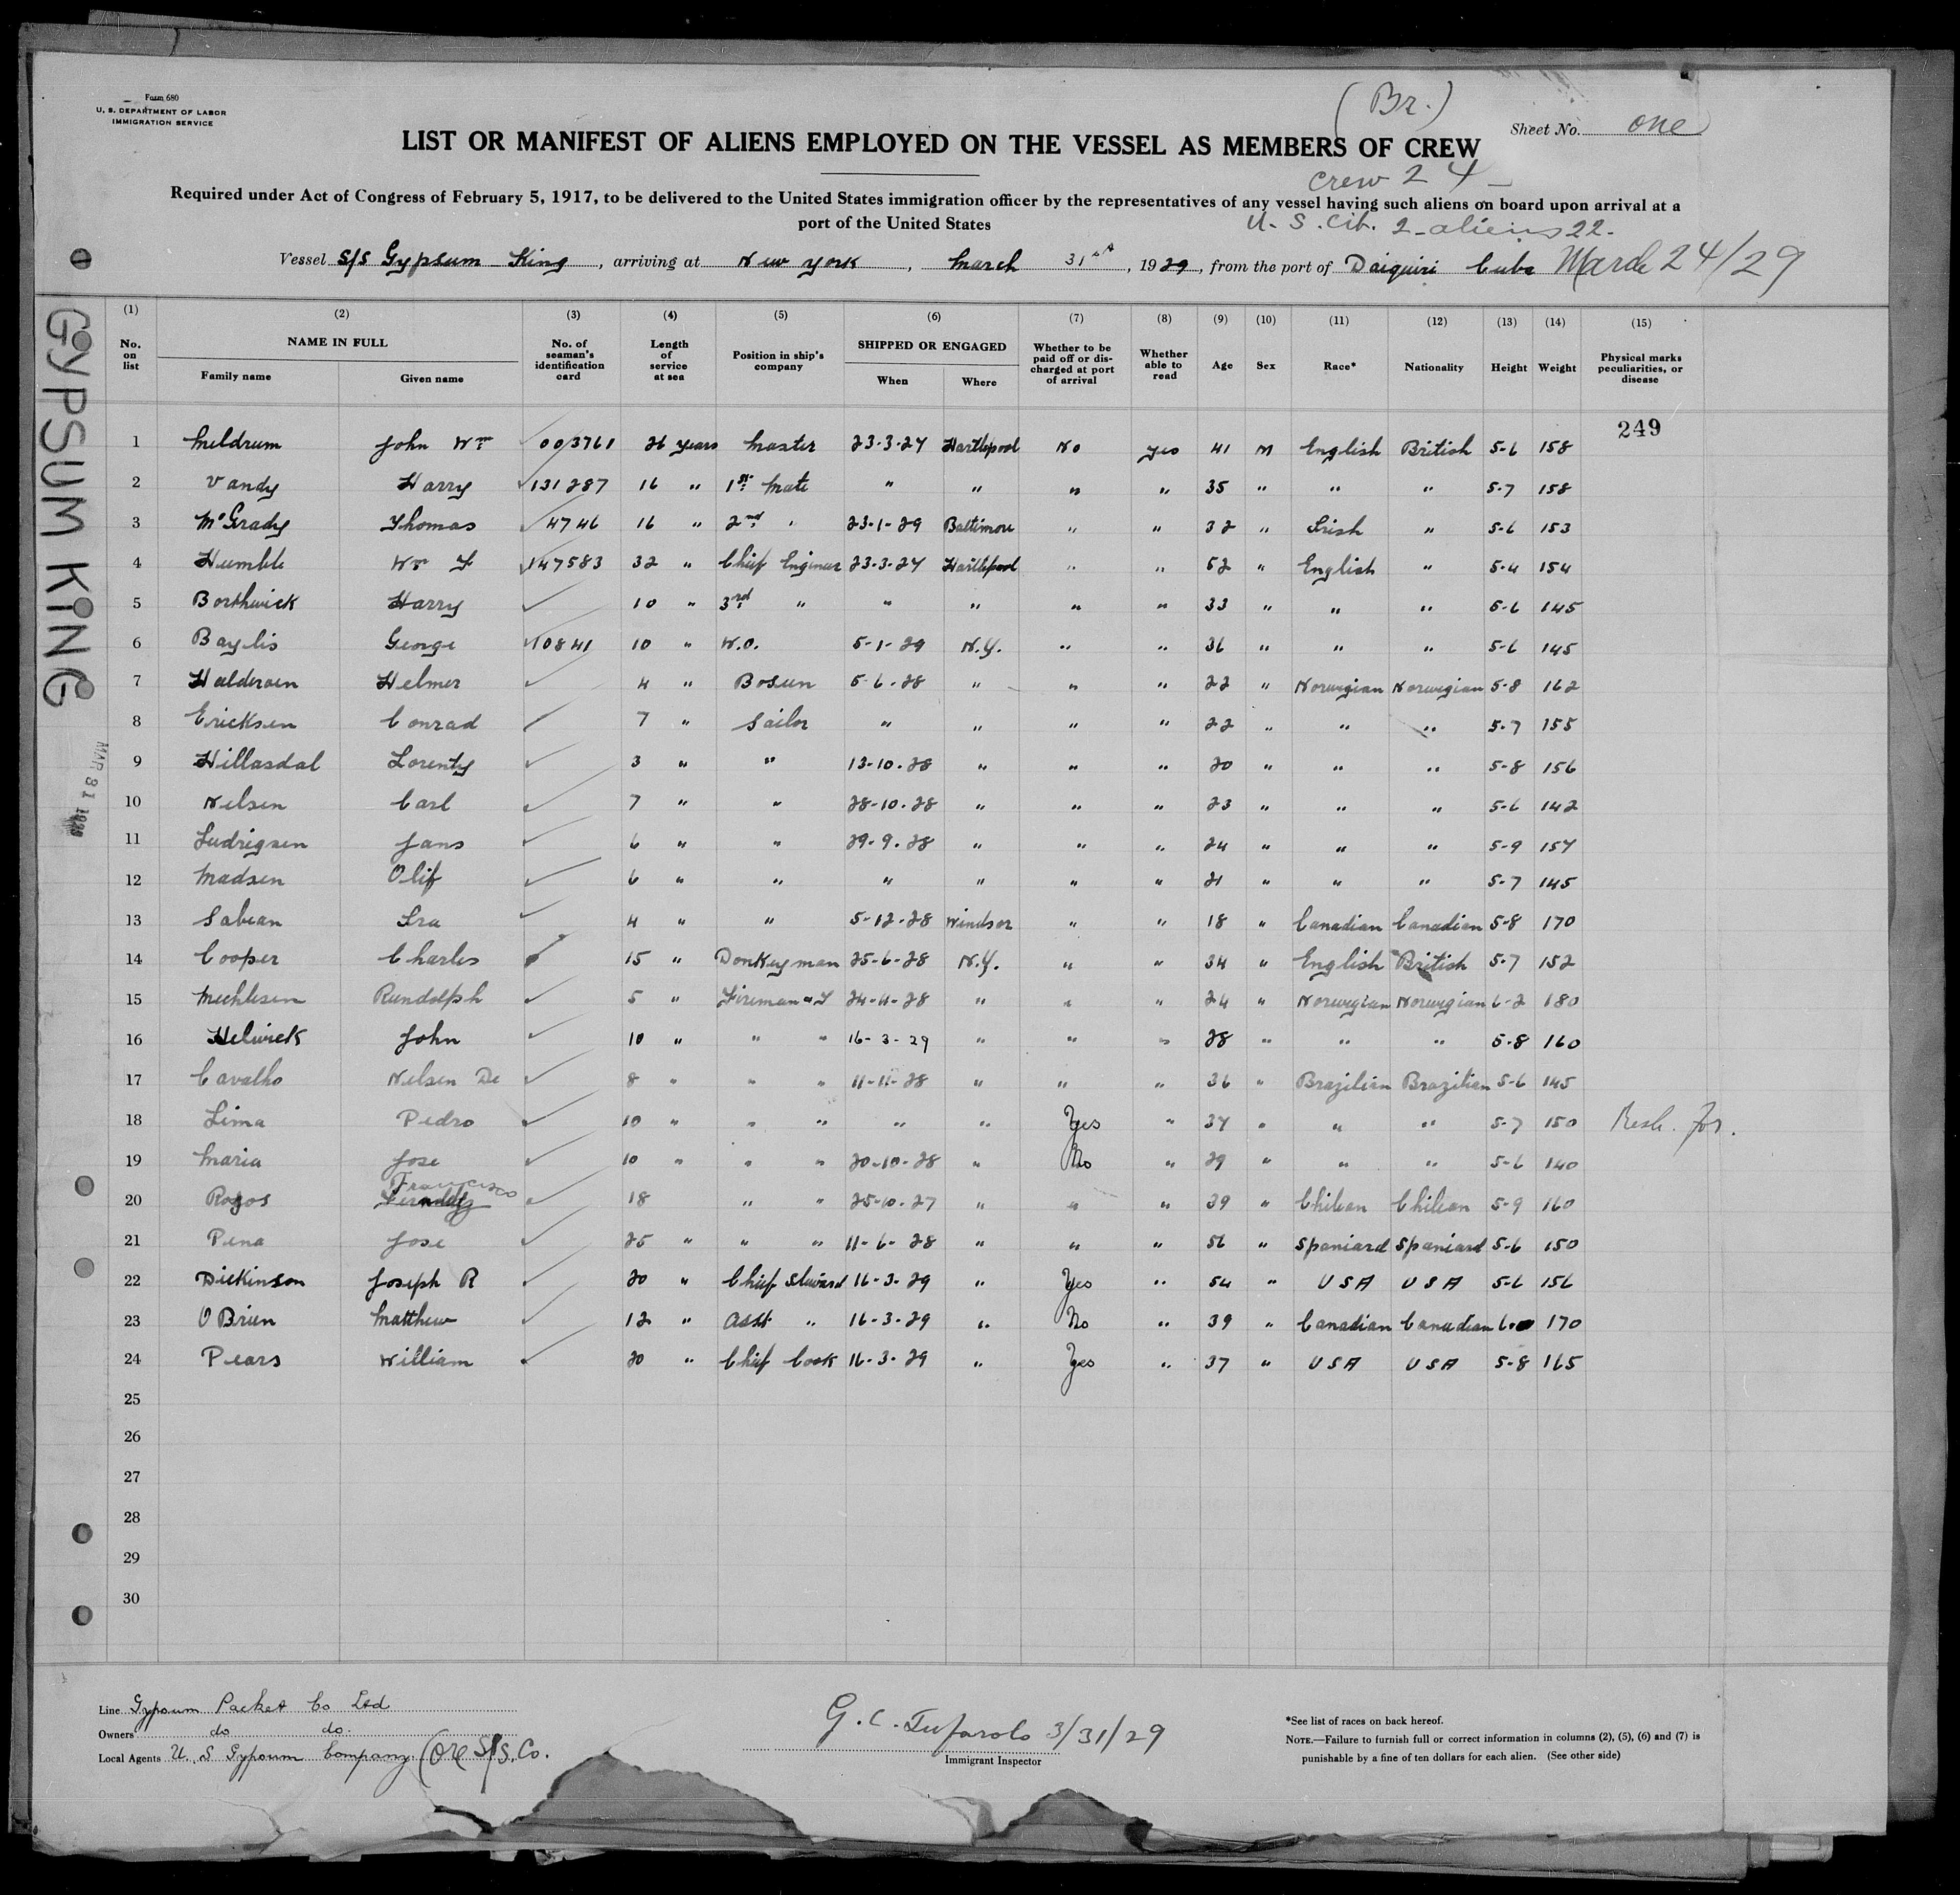 Form 680
U. S. DEPARTMENT OF LABOR
IMMIGRATION SERVICE
(Br.)
Sheet No. one
LIST OR MANIFEST OF ALIENS EMPLOYED ON THE VESSEL AS MEMBERS OF CREW
crew 24 -
Required under Act of Congress of February 5, 1917, to be delivered to the United States immigration officer by the representatives of any vessel having such aliens on board upon arrival at a
port of the United States
U. S. Cit. 2 - aliens 22 -
Vessel S/S Gypsum King, arriving at New York, March 31st, 1929, from the port of Daiquiri Cuba March 24/29
GYPSUM KING
MAR 31 1929
(1) (2) (3) (4) (5) (6) (7) (8) (9) (10) (11) (12) (13) (14) (15)
No. on list NAME IN FULL Family name Given name No. of seaman's identification card Length of service at sea Position in ship's company SHIPPED OR ENGAGED When Where Whether to be paid off or discharged at port of arrival Whether able to read Age Sex Race* Nationality Height Weight Physical marks peculiarities, or disease
249
1 Meldrum John Wm 003761 26 years Master 23-3-27 Hartlepool No yes 41 M English British 5-6 158
2 Vandy Harry 131287 16 " 1st Mate " " " " 35 " " " 5-7 158
3 McGrady Thomas 4746 16 " 2nd " 23-1-29 Baltimore " " 32 " Irish " 5-6 153
4 Humble Wm 147583 32 " Chief Engineer 23-3-27 Hartlepool " " 52 " English " 5-4 154
5 Borthwick Harry 10 " 3rd " " " " " 33 " " " 5-6 145
6 Baylis George 10841 10 " W.O. 5-1-29 N.Y. " " 36 " " " 5-6 145
7 Haldersen Helmer 4 " Bosun 5-6-28 " " " 22 " Norwegian Norwegian 5-8 162
8 Ericksen Conrad 7 " Sailor " " " " 22 " " " 5-7 155
9 Hillasdal Lorenty 3 " " 13-10-28 " " " 20 " " " 5-8 156
10 Nelsen Carl 7 " " 28-10-28 " " " 23 " " " 5-6 142
11 Ludrigsen Jans 6 " " 29-9-28 " " " 24 " " " 5-9 157
12 Madsen Olif 6 " " " " " " 21 " " " 5-7 145
13 Sabean Ira 4 " " 5-12-28 Windsor " " 18 " Canadian Canadian 5-8 170
14 Cooper Charles 15 " Donkeyman 25-6-28 N.Y. " " 34 " English British 5-7 152
15 Michlesen Rundolph 5 " Fireman & T 24-4-28 " " " 24 " Norwegian Norwegian 6-2 180
16 Helwick John 10 " " " 16-3-29 " " " 28 " " " 5-8 160
17 Cavalho Nelsen De 8 " " " 11-11-28 " " " 36 " Brazilian Brazilian 5-6 145
18 Lima Pedro 10 " " " " " Yes " 37 " " " 5-7 150
19 Maria Jose 10 " " " 20-10-28 " No " 29 " " " 5-6 140
20 Rogos Francisco 18 " " 25-10-27 " " " 39 " Chilean Chilean 5-9 160
21 Pena Jose 25 " " " 11-6-28 " " " 56 " Spaniard Spaniard 5-6 150
22 Dickinson Joseph R 20 " Chief Steward 16-3-29 " Yes " 54 " USA USA 5-6 156
23 O Brien Matthew 12 " Asst " 16-3-29 " No " 39 " Canadian Canadian 170
24 Pears William 20 " Chief Cook 16-3-29 " Yes " 37 " USA USA 5-8 165
25
26
27
28
29
30
Line Gypsum Packet Co Ltd
Owners do do.
Local Agents U. S Gypsum Company (Ore S/S. Co.
G. C. Tufarolo 3/31/29
Immigrant Inspector
*See list of races on back hereof.
NOTE.—Failure to furnish full or correct information in columns (2), (5), (6) and (7) is
punishable by a fine of ten dollars for each alien. (See other side)